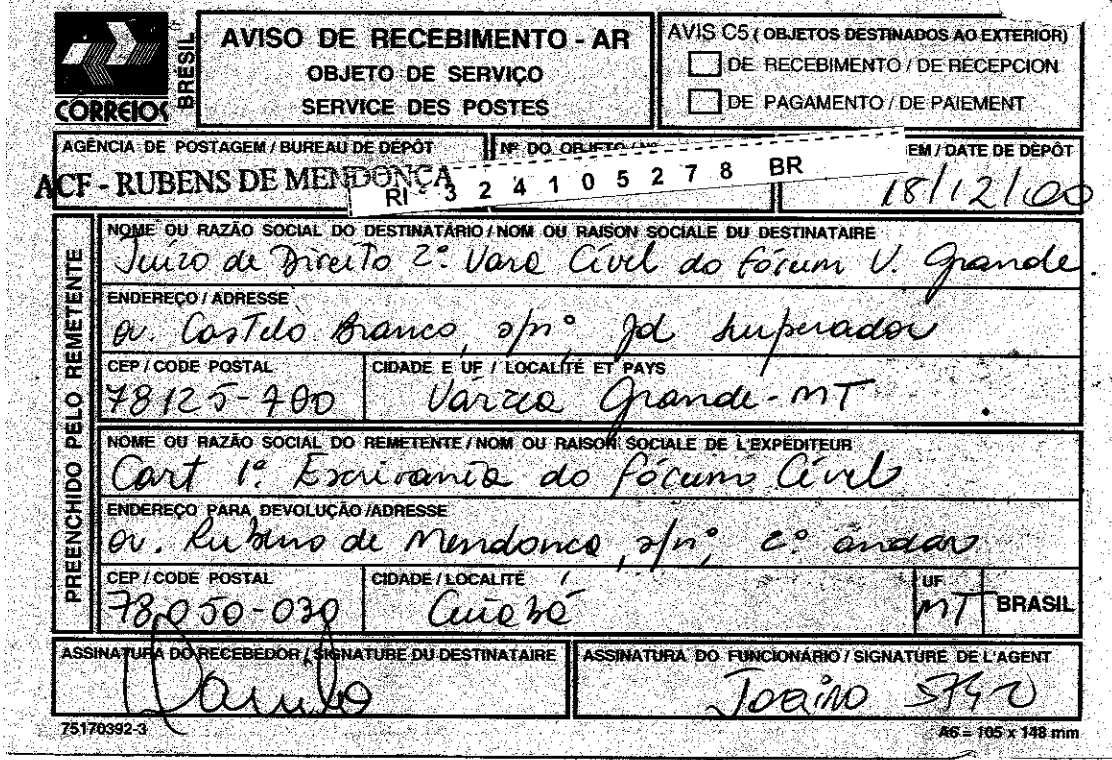 CORREIOS
BRÉSIL
AVISO DE RECEBIMENTO - AR
OBJETO DE SERVIÇO
SERVICE DES POSTES
AVIS C5 ( OBJETOS DESTINADOS AO EXTERIOR)
DE RECEBIMENTO / DE RECEPCION
DE PAGAMENTO / DE PAIEMENT
AGÊNCIA DE POSTAGEM / BUREAU DE DÉPÔT
ACF - RUBENS DE MENDONÇA
Nº DO OBJETO
RI - 3 2 4 1 0 5 2 7 8 BR
EM / DATE DE DÉPÔT
18/12/00
PREENCHIDO PELO REMETENTE
NOME OU RAZÃO SOCIAL DO DESTINATÁRIO / NOM OU RAISON SOCIALE DU DESTINATAIRE
Juizo de Direito 2ª Vara Civil do Fórum V. Grande.
ENDEREÇO / ADRESSE
av. Castelo Branco, s/nº, Jd
CEP / CODE POSTAL
78125-700
CIDADE E UF / LOCALITÉ ET PAYS
Várzea Grande - MT
NOME OU RAZÃO SOCIAL DO REMETENTE / NOM OU RAISON SOCIALE DE L'EXPÉDITEUR
Cart 1ª Escrivania do Fórum Cível
ENDEREÇO PARA DEVOLUÇÃO /ADRESSE
av. Rubens de Mendonca, s/nº, 2º andar
CEP / CODE POSTAL
78050-030
CIDADE / LOCALITÉ
Cuiabá
UF
MT
BRASIL
ASSINATURA DO RECEBEDOR / SIGNATURE DU DESTINATAIRE
ASSINATURA DO FUNCIONÁRIO / SIGNATURE DE L'AGENT
75170392-3
A6 = 105 x 148 mm